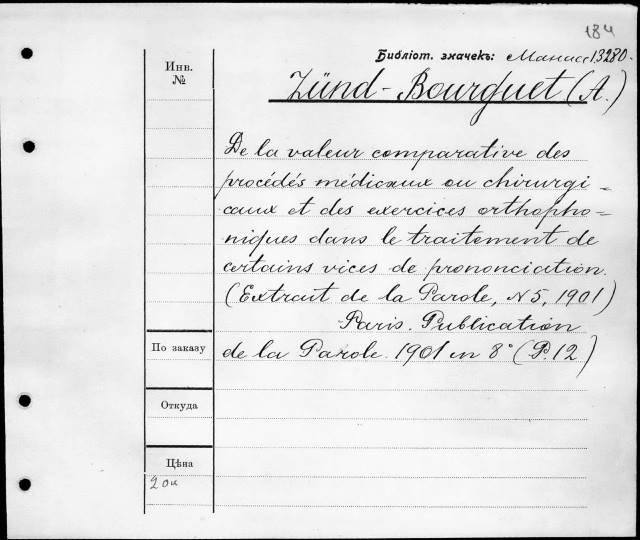 184
Библіот. значекъ: 13280.
Инв.
№
Zünd-Bourguet (A.)
De la valeur comparative des
procédés médicaux ou chirurgi=
caux et des exercices orthopho=
niques dans le traitement de
certains vices de prononciation.
(Extrait de la Parole, N 5, 1901)
Paris. Publication
По заказу
de la Parole. 1901 in 8° (P. 12)
Откуда
Цѣна